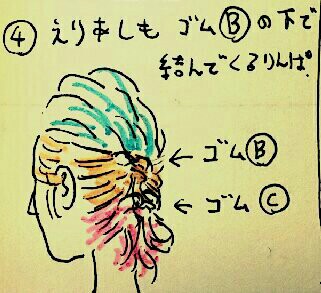 ④ えりあしも ゴムⒷの下で
結んでくるりんぱ。
← ゴムⒷ
← ゴムⒸ